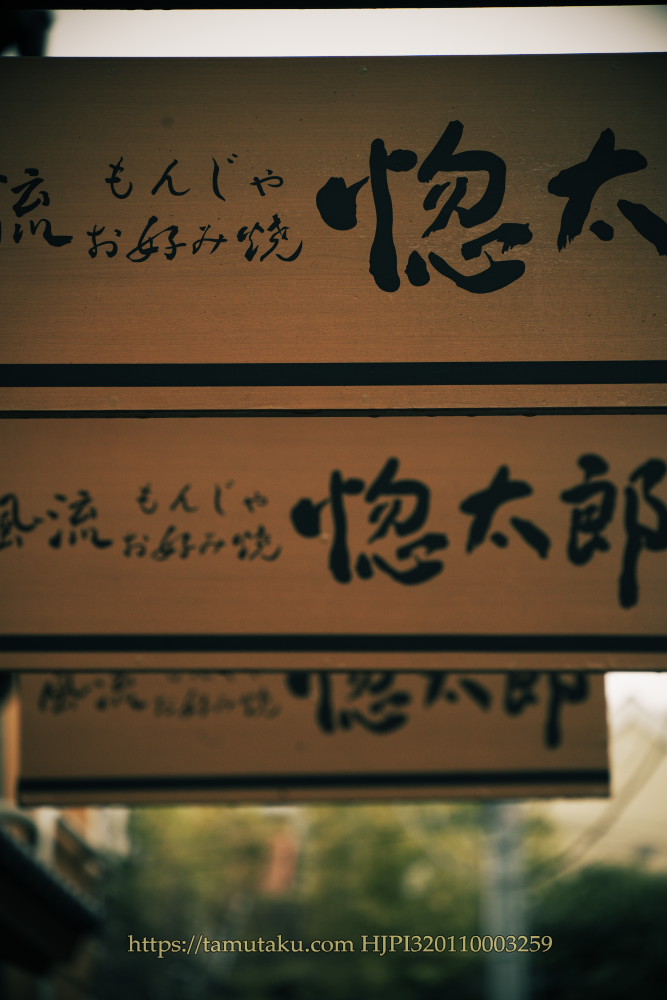 流 もんじゃ 惚太
お好み焼
風流 もんじゃ 惚太郎
お好み焼
風流 お好み焼 惚太郎
https://tamutaku.com HJPI320110003259